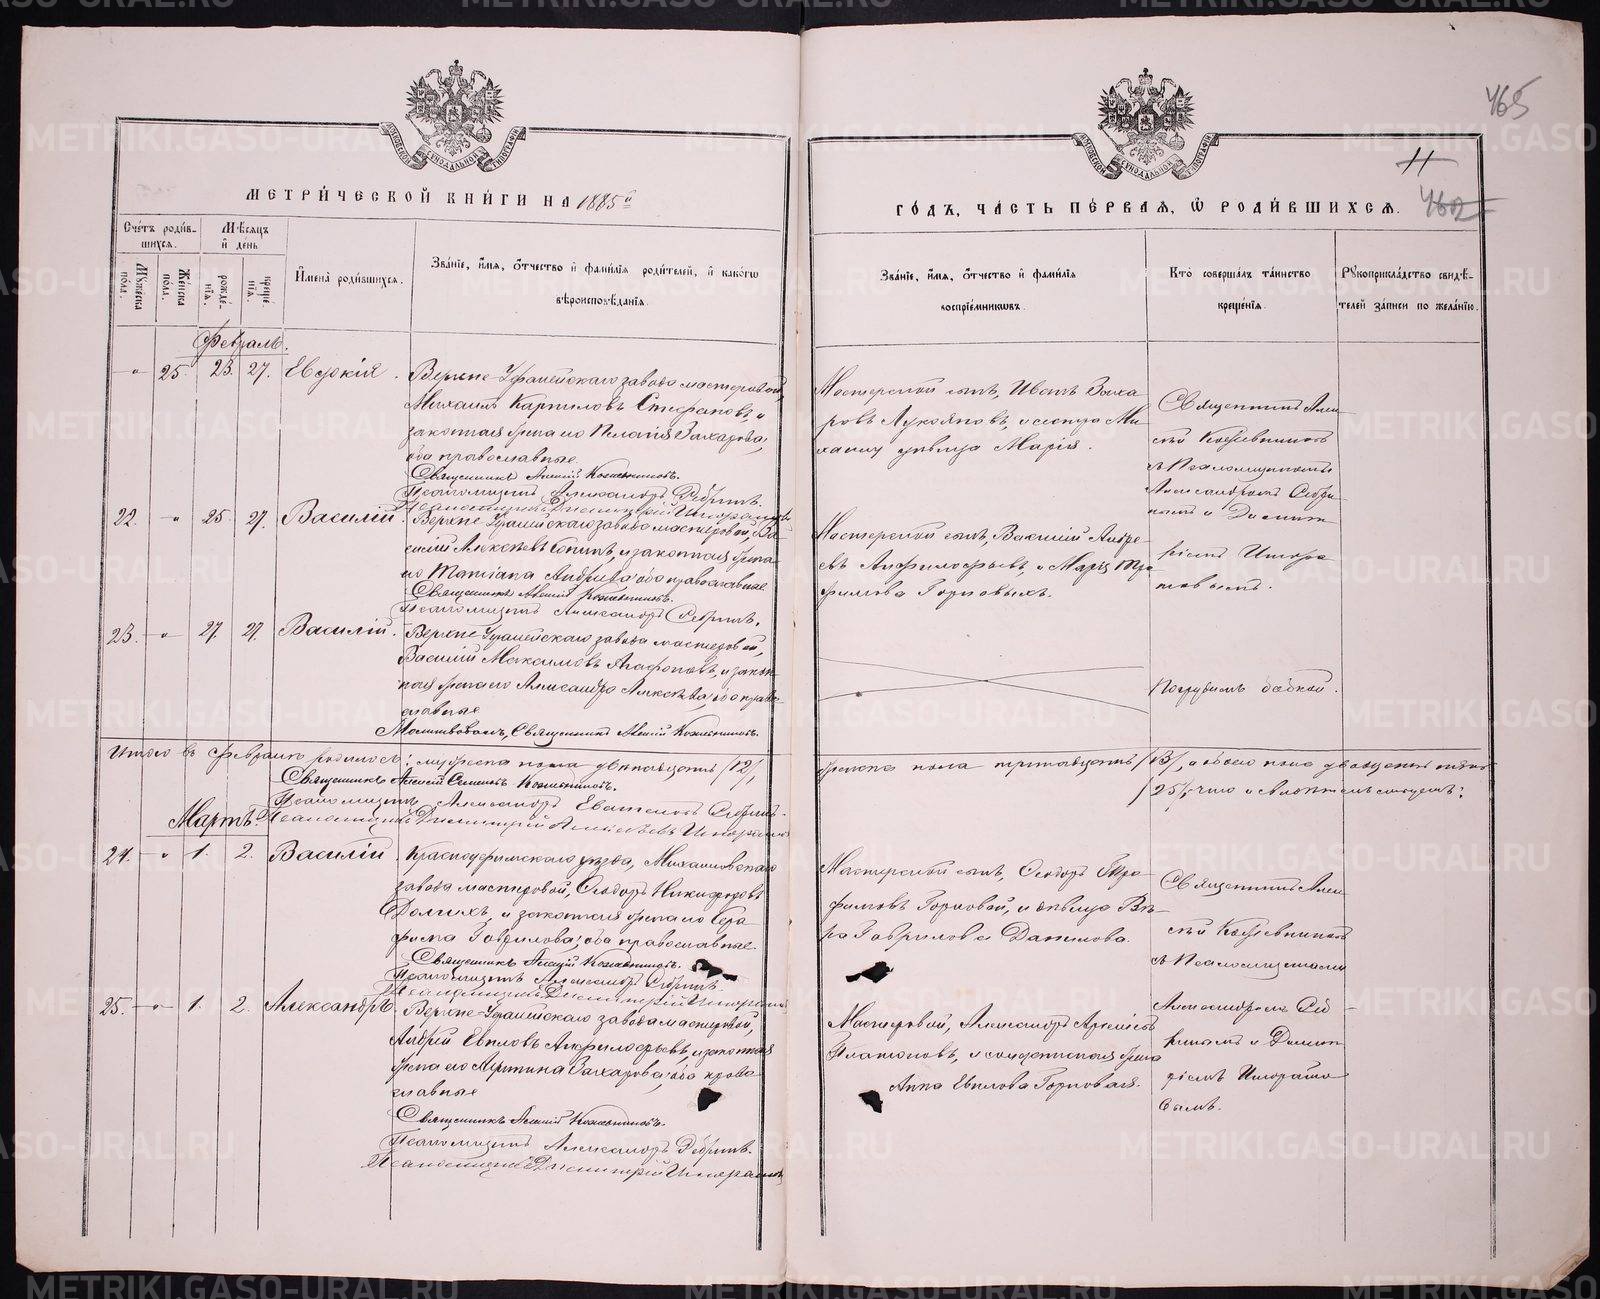 465
11
462
МОСКОВСКОЙ СѴНОДАЛЬНОЙ ТИПОГРАФІИ
МОСКОВСКОЙ СѴНОДАЛЬНОЙ ТИПОГРАФІИ
МЕТРИЧЕСКОЙ КНИГИ НА 1885й
ГОДЪ, ЧАСТЬ ПЕРВАЯ, Ѡ РОДИВШИХСЯ.
Счетъ родив-
шихся.
Мѣсяцъ
и день
Мужеска пола.
Женска пола.
рожде-
нія.
креще-
нія.
Имена родившихся.
Званіе, имя, отчество и фамилія родителей, и какогѡ
вѣроисповѣданія.
Званіе, имя, отчество и фамилія
воспріемниковъ.
Кто совершалъ таинство
крещенія.
Рукоприкладство свидѣ-
телей записи по желанію.
Февраль.
" 25. 23. 27. Евдокія.
Верхне-Уфалейскаго завода мастеровой,
Михаилъ Карпиловъ Стефановъ, и
законная жена его Пелагія Захарова,
оба православные.
Священникъ Алексій Кожевниковъ.
Псаломщикъ Александръ Ребринъ.
Псаломщикъ Димитрій
Мастерской сынъ, Иванъ Заха
ровъ Лукояновъ, и сестра Ми-
хаилу дѣвица Марія.
Священникъ Алек-
сѣй Кожевниковъ
съ Псаломщиками
Александромъ Ребри-
нымъ и Димит-
ріемъ
22. " 25. 27. Василій.
Верхне-Уфалейскаго завода мастеровой, Ва-
силій Алексѣевъ и законная жена
его Татіана Андреева оба православные
Священникъ Алексій Кожевниковъ.
Псаломщикъ Александръ Ребринъ.
Мастерской сынъ, Василій Андре-
евъ Анфилофьевъ, и Марія Тро-
фимова Горновыхъ.
23. " 27. 27. Василій.
Верхне-Уфалейскаго завода мастеровой,
Василій Максимовъ Агафоновъ, и закон-
ная жена его Александра Алексѣева, оба право-
славные
Молитвовалъ, Священникъ Алексій Кожевниковъ.
Погружалъ бабкой.
Итого въ Февралѣ родилось: мужеска пола двѣнадцать /12/,
женска пола тринадцать /13/, а обоего пола двадцать пять
/25/, что и свидѣтельствуемъ:
Священникъ Алексій Семеновъ Кожевниковъ.
Псаломщикъ Александръ Ребринъ.
Псаломщикъ Димитрій Алексѣевъ
Мартъ.
24. " 1. 2. Василій.
Красноуфимскаго уѣзда, Михайловскаго
завода мастеровой, Ѳеодоръ Никифоровъ
Долгихъ, и законная жена его Сера-
фима Гаврилова, оба православные.
Священникъ Алексій Кожевниковъ.
Псаломщикъ Александръ Ребринъ.
Псаломщикъ Димитрій
Мастерской сынъ, Ѳеодоръ Тро-
фимовъ Горновой, и дѣвица Вѣ-
ра Гаврилова Данилова.
Священникъ Алек-
сѣй Кожевниковъ
съ Псаломщиками
Александромъ Реб-
ринымъ и Димит-
ріемъ
25. " 1. 2. Александръ.
Верхне-Уфалейскаго завода мастеровой,
Андрей Евиловъ Анфилофьевъ, и законная
жена его Захарова, оба право-
славные
Священникъ Алексій Кожевниковъ.
Псаломщикъ Александръ Ребринъ.
Псаломщикъ Димитрій
Мастеровой, Александръ
Платоновъ, и жена
Анна Евилова Горновая.
METRIKI.GASO-URAL.RU